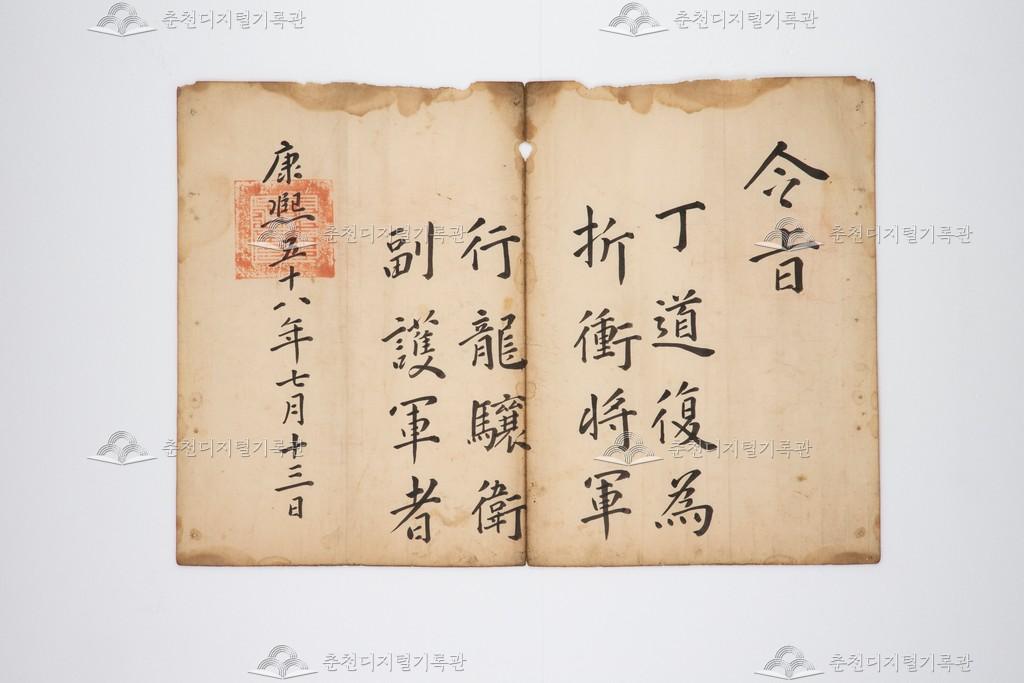 令旨
丁道復為
折衝将軍
行龍驤衛
副護軍者
康熙五十八年七月十三日
춘천디지털기록관
춘천디지털기록관
춘천디지털기록관
춘천디지털기록관
춘천디지털기록관
춘천디지털기록관
춘천디지털기록관
춘천디지털기록관